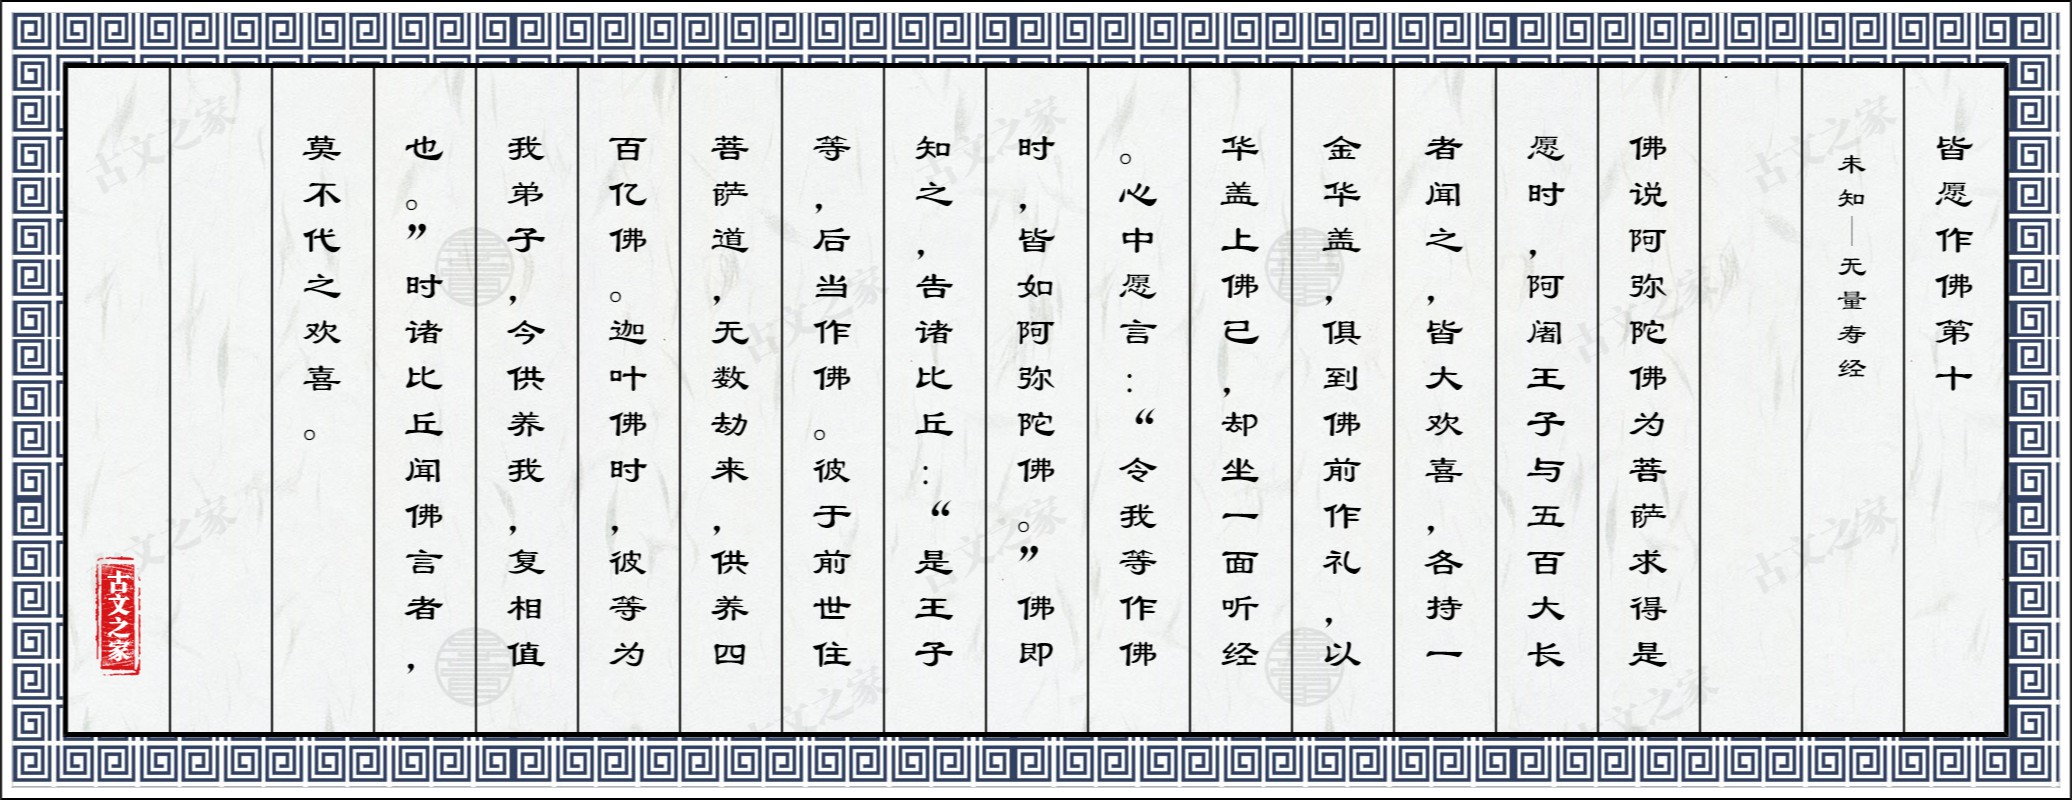 皆愿作佛第十
未知—无量寿经
佛说阿弥陀佛为菩萨求得是
愿时，阿阇王子与五百大长
者闻之，皆大欢喜，各持一
金华盖，俱到佛前作礼，以
华盖上佛已，却坐一面听经
。心中愿言：“令我等作佛
时，皆如阿弥陀佛。”佛即
知之，告诸比丘：“是王子
等，后当作佛。彼于前世住
菩萨道，无数劫来，供养四
百亿佛。迦叶佛时，彼等为
我弟子，今供养我，复相值
也。”时诸比丘闻佛言者，
莫不代之欢喜。
古文之家